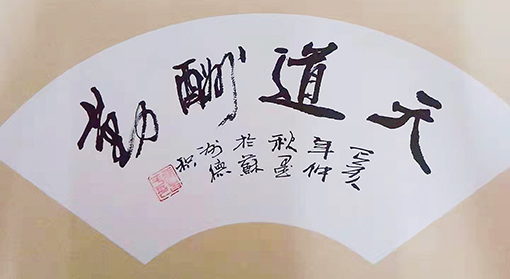 天道酬勤
年仲
秋墨
於蘇
德